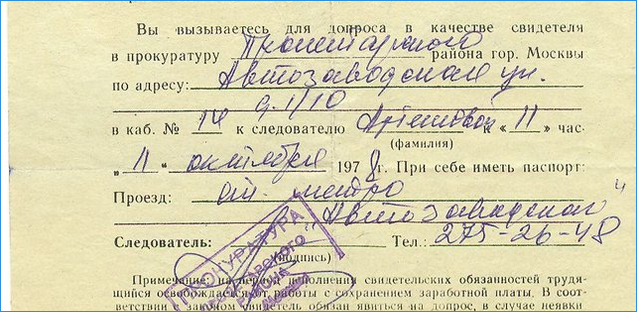 Вы вызываетесь для допроса в качестве свидетеля
в прокуратуру Пролетарского района гор. Москвы
по адресу: Автозаводская ул.
д. 1/10
в каб. № 14 к следователю Артемовой „ « 11 » час-
(фамилия)
„ 11 “ октября 1978 г. При себе иметь паспорт:
Проезд: ст. метро
„Автозаводская“
Следователь: Тел.: 275-26-48
(подпись)
ПРОКУРАТУРА
ПРОЛЕТАРСКОГО
РАЙОНА
Примечание: на период исполнения свидетельских обязанностей трудя-
щийся освобождается от работы с сохранением заработной платы. В соот-
ветствии с законом свидетель обязан явиться на допрос, в случае неявки